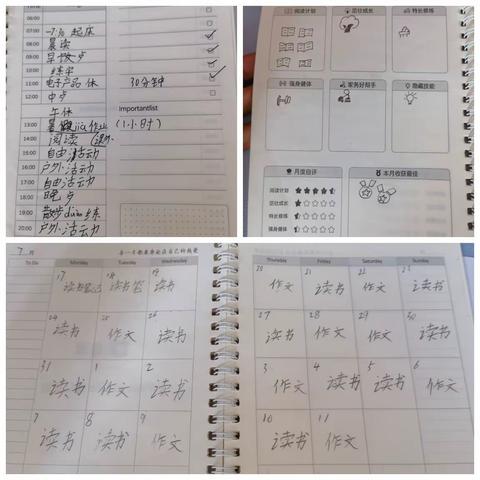 05:00
06:00
07:00 -7:30 起床
08:00 晨读
09:00 早
10:00 练字
11:00 电子产品 休 30分钟
12:00 中
午休
Importantlist
13:00 作业 (1小时)
14:00 阅读
15:00 自由活动
16:00 户外活动
17:00 自由活动
18:00 晚
19:00 散步 练
20:00 户外活动
阅读计划
茁壮成长
特长修炼
强身健体
家务好帮手
隐藏技能
月度自评
本月收获最佳
阅读计划
茁壮成长
特长修炼
强身健体
7 月
To Do Monday Tuesday Wednesday
17 18 19
读书 读书 读书
24 25 26
读书 作文 读书
31 1 2
读书 作文 读书
7 8 9
读书 读书 作文
Thursday Friday Saturday Sunday
20 21 22 23
作文 读书 作文 读书
27 28 29 30
读书 作文 作文 读书
3 4 5 6
作文 读书 读书 作文
10 11
读书 作文